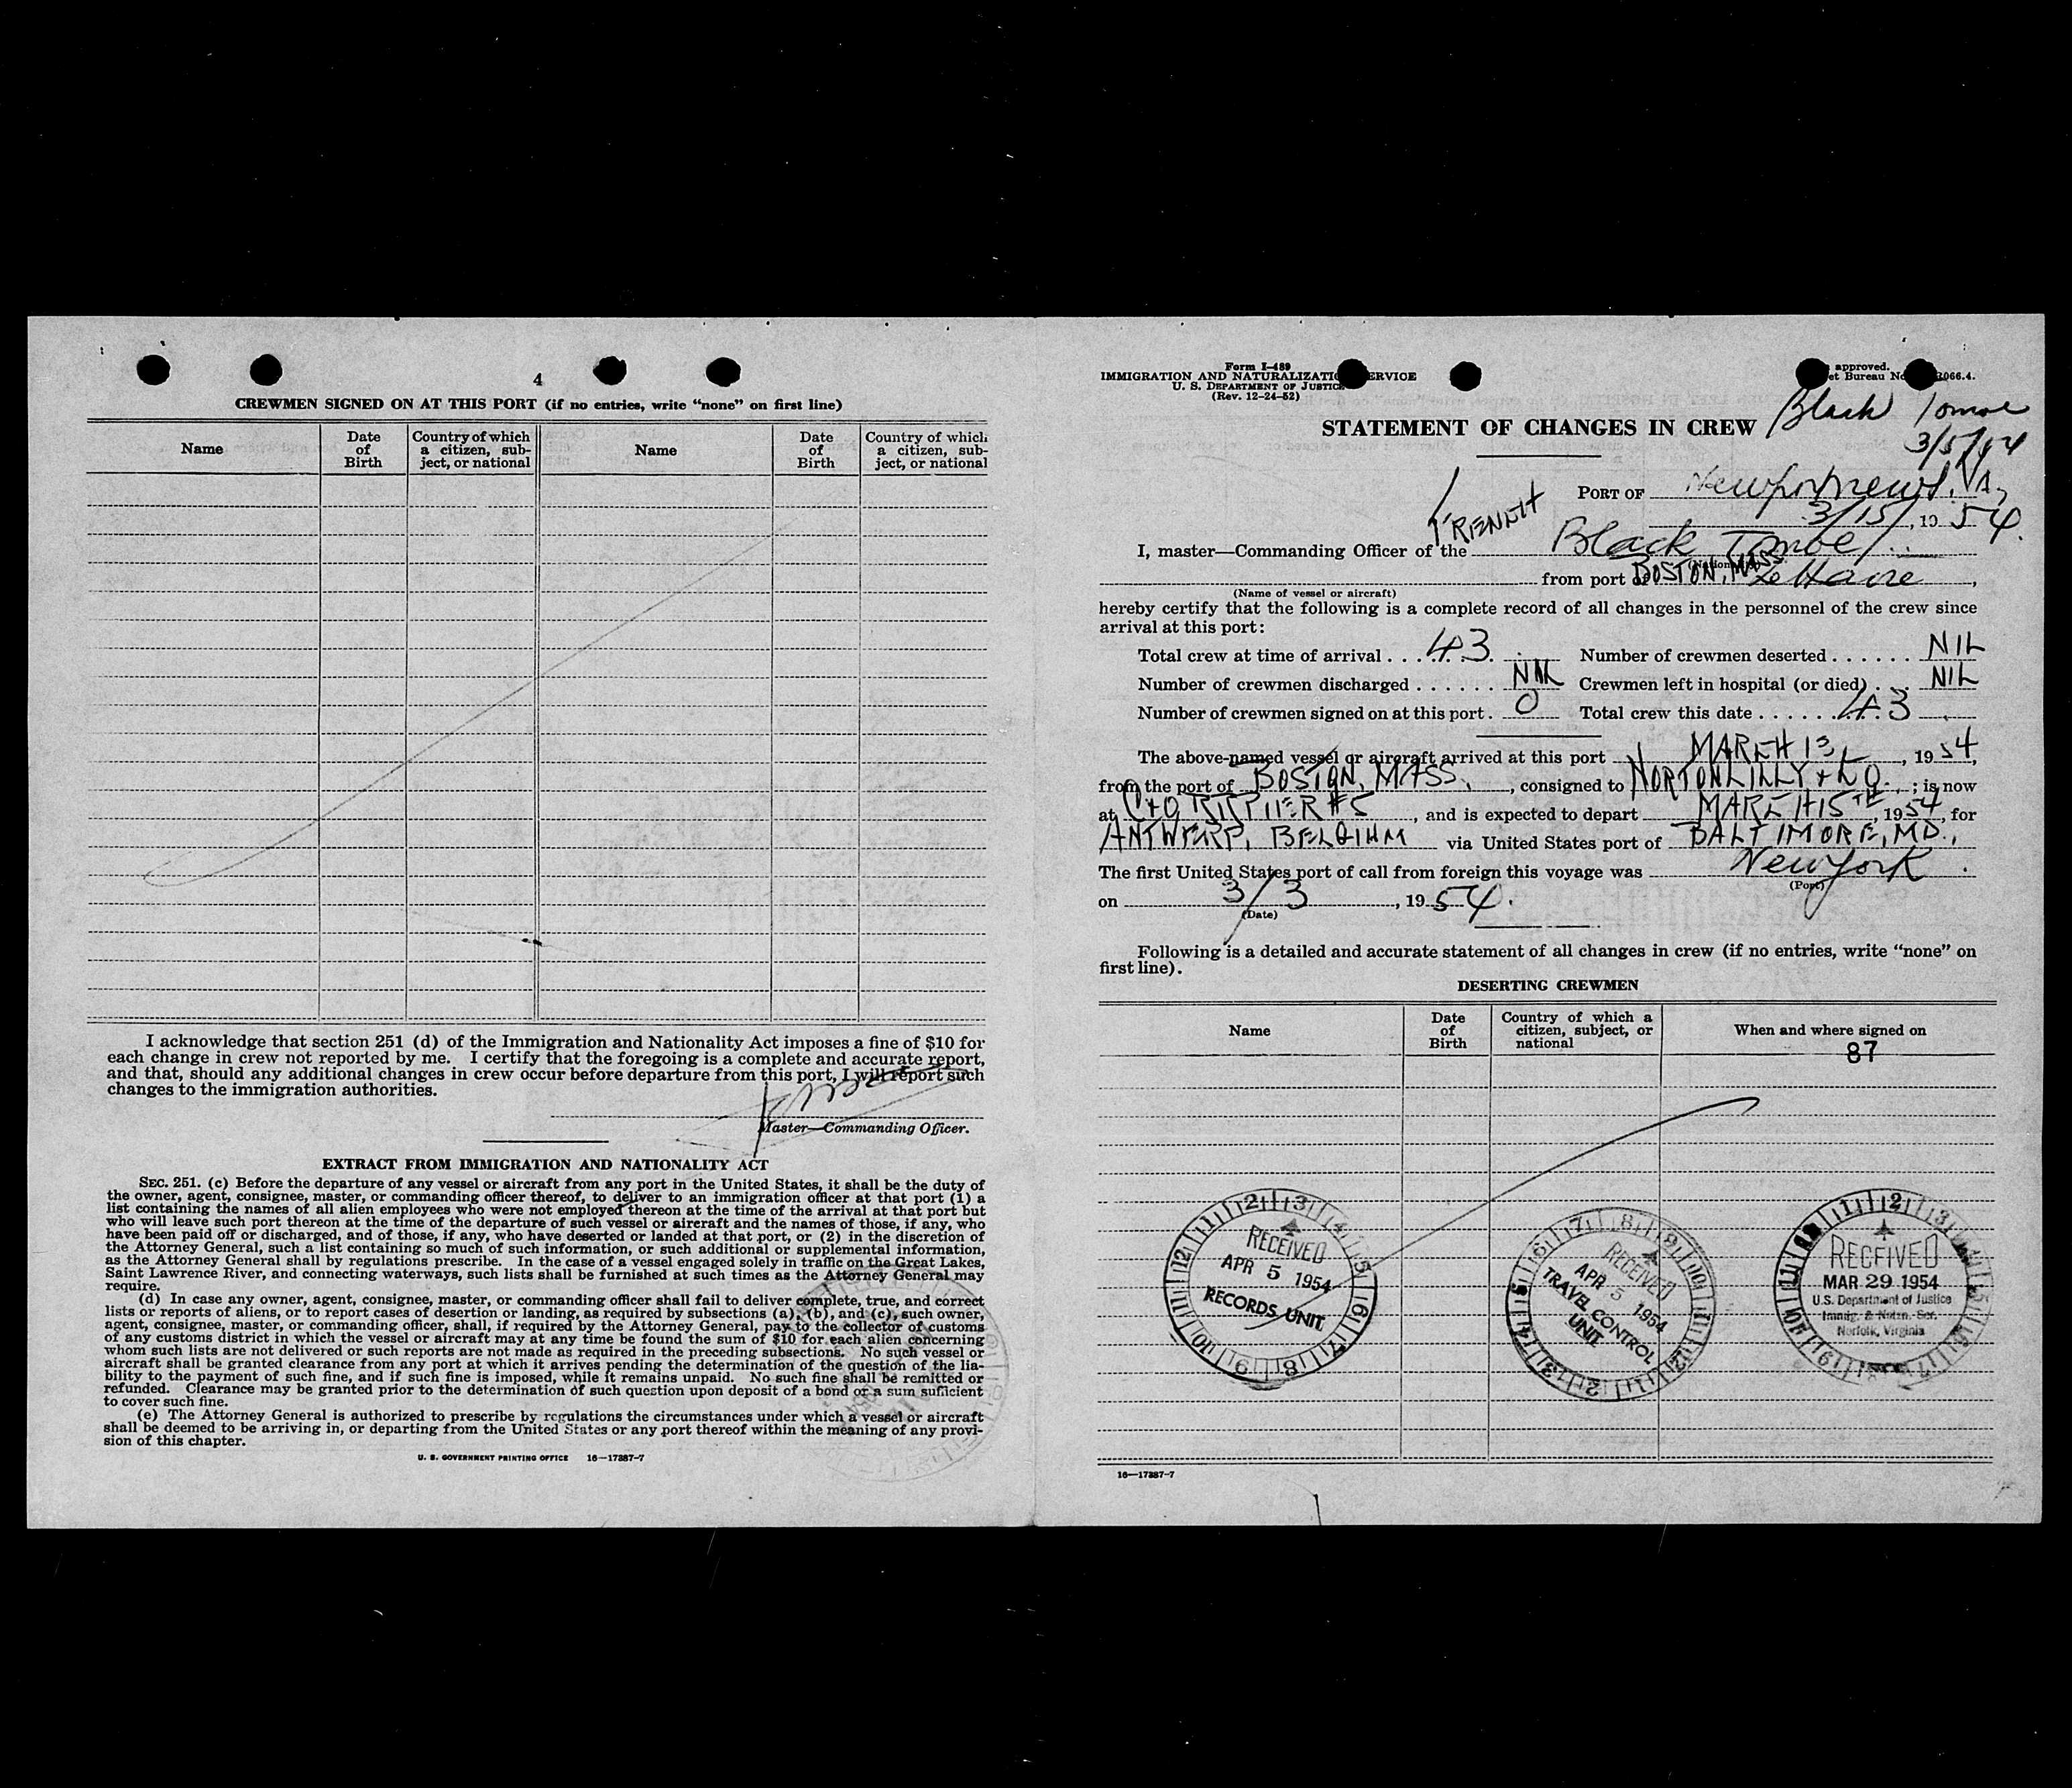 4
CREWMEN SIGNED ON AT THIS PORT (if no entries, write "none" on first line)
Name
Date of Birth
Country of which a citizen, sub-ject, or national
Name
Date of Birth
Country of which a citizen, sub-ject, or national
I acknowledge that section 251 (d) of the Immigration and Nationality Act imposes a fine of $10 for
each change in crew not reported by me. I certify that the foregoing is a complete and accurate report,
and that, should any additional changes in crew occur before departure from this port, I will report such
changes to the immigration authorities.
Master—Commanding Officer.
EXTRACT FROM IMMIGRATION AND NATIONALITY ACT
SEC. 251. (c) Before the departure of any vessel or aircraft from any port in the United States, it shall be the duty of
the owner, agent, consignee, master, or commanding officer thereof, to deliver to an immigration officer at that port (1) a
list containing the names of all alien employees who were not employed thereon at the time of the arrival at that port but
who will leave such port thereon at the time of the departure of such vessel or aircraft and the names of those, if any, who
have been paid off or discharged, and of those, if any, who have deserted or landed at that port, or (2) in the discretion of
the Attorney General, such a list containing so much of such information, or such additional or supplemental information,
as the Attorney General shall by regulations prescribe. In the case of a vessel engaged solely in traffic on the Great Lakes,
Saint Lawrence River, and connecting waterways, such lists shall be furnished at such times as the Attorney General may
require.
(d) In case any owner, agent, consignee, master, or commanding officer shall fail to deliver complete, true, and correct
lists or reports of aliens, or to report cases of desertion or landing, as required by subsections (a), (b), and (c), such owner,
agent, consignee, master, or commanding officer, shall, if required by the Attorney General, pay to the collector of customs
of any customs district in which the vessel or aircraft may at any time be found the sum of $10 for each alien concerning
whom such lists are not delivered or such reports are not made as required in the preceding subsections. No such vessel or
aircraft shall be granted clearance from any port at which it arrives pending the determination of the question of the lia-
bility to the payment of such fine, and if such fine is imposed, while it remains unpaid. No such fine shall be remitted or
refunded. Clearance may be granted prior to the determination of such question upon deposit of a bond or a sum sufficient
to cover such fine.
(e) The Attorney General is authorized to prescribe by regulations the circumstances under which a vessel or aircraft
shall be deemed to be arriving in, or departing from the United States or any port thereof within the meaning of any provi-
sion of this chapter.
U. S. GOVERNMENT PRINTING OFFICE 16—17387-7
Form I-489
IMMIGRATION AND NATURALIZATI ERVICE
U. S. DEPARTMENT OF JUSTICE
(Rev. 12-24-52)
approved.
et Bureau No 066.4.
STATEMENT OF CHANGES IN CREW
Black
PORT OF Newport news, VA,
3/15/, 19 54.
FRENCH
I, master—Commanding Officer of the Black
from port of BOSTON, MASS Le Havre,
(Name of vessel or aircraft)
hereby certify that the following is a complete record of all changes in the personnel of the crew since
arrival at this port:
Total crew at time of arrival 43 Number of crewmen deserted NIL
Number of crewmen discharged NIL Crewmen left in hospital (or died) NIL
Number of crewmen signed on at this port 0 Total crew this date 43
The above-named vessel or aircraft arrived at this port MARCH 13, 1954,
from the port of BOSTON, MASS., consigned to NORTON LILLY + CO.; is now
at C+O RR PIER #5, and is expected to depart MARCH 15TH, 1954, for
ANTWERP, BELGIUM via United States port of BALTIMORE, MD.,
The first United States port of call from foreign this voyage was New York.
(Port)
on 3/3, 1954.
(Date)
Following is a detailed and accurate statement of all changes in crew (if no entries, write "none" on
first line).
DESERTING CREWMEN
Name
Date of Birth
Country of which a citizen, subject, or national
When and where signed on
87
RECEIVED
APR 5 1954
RECORDS UNIT
RECEIVED
APR 5 1954
TRAVEL CONTROL
UNIT
RECEIVED
MAR 29 1954
U.S. Department of Justice
Immig. & Natzn. Ser.
Norfolk, Virginia
16—17387-7